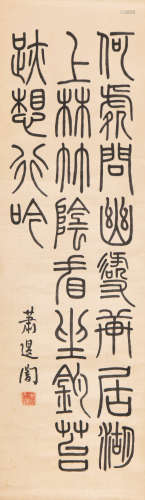 何處問幽尋居湖
上林竹陰看坐釣苔
跡想行吟
蕭退闇